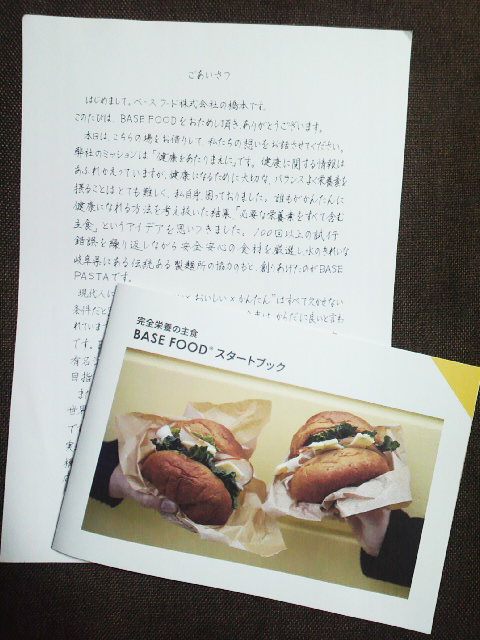 ごあいさつ
はじめまして。ベースフード株式会社の橋本です。
このたびは、BASE FOODをおためし頂き、ありがとうございます。
本日は、こちらの場をお借りして、私たちの想いをお話させてください。
弊社のミッションは「健康をあたりまえに」です。健康に関する情報は
あふれかえっていますが、健康になるために大切な、バランスよく栄養素を
摂ることはとても難しく、私自身、困っておりました。誰もがかんたんに
健康になれる方法を考え抜いた結果「必要な栄養素をすべて含む
主食」というアイデアを思いつきました。100回以上の試行
錯誤を繰り返しながら安全安心の食材を厳選し、水のきれいな
岐阜県にある伝統ある製麺所の協力のもと、創りあげたのがBASE
PASTAです。
現代人に × おいしい × かんたん"はすべて欠かせない
条件だと かんだに良いと言わ
れていま
です。
有名
目指
世界
で
実
橋
完全栄養の主食
BASE FOOD® スタートブック